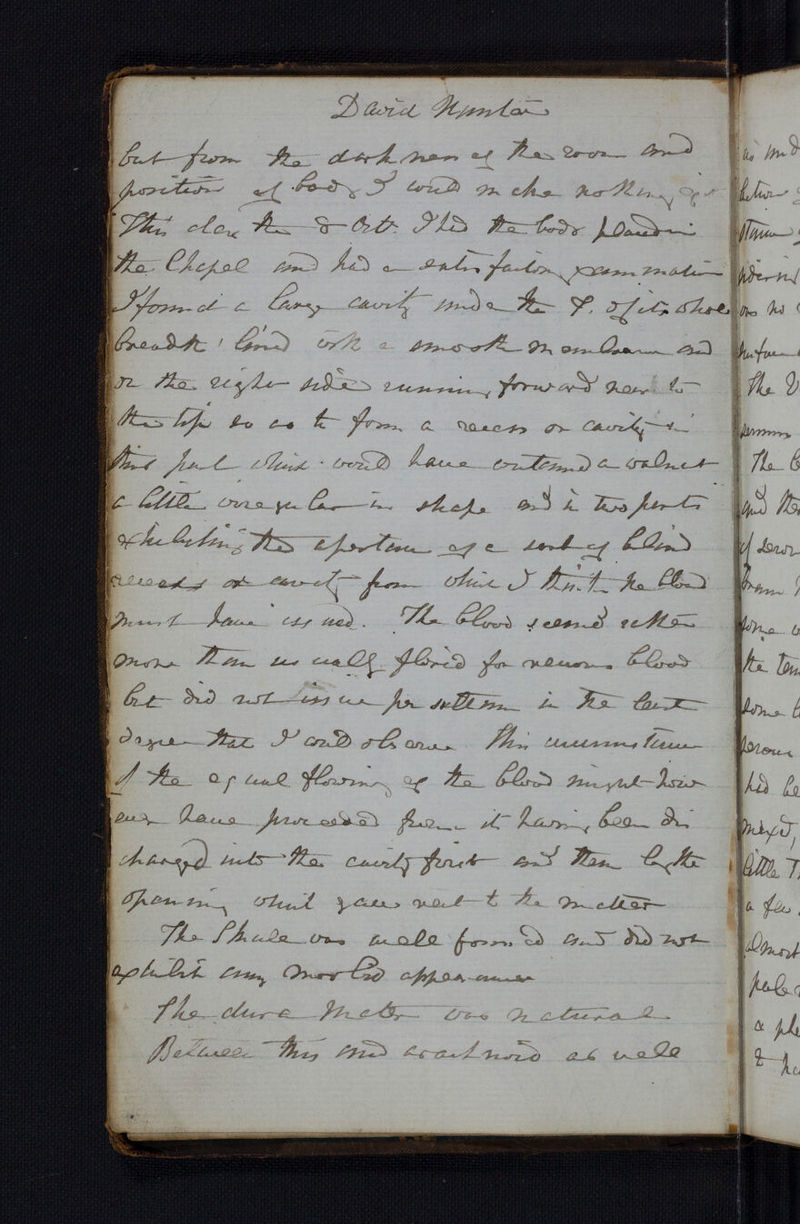 David Hunter
but from the darkness of the room and
position of body I could make nothing of it
This day the 8 Oct. I had the body placed in
the Chapel and had a satisfactory examination
I found a large cavity under the of its whole
breadth lined with a smooth membrane and
on the right side running forward near to
the tip so as to form a recess or cavity in
this part which would have contained a walnut
a little irregular in shape and in two parts
exhibiting the aperture of a sort of blind
recess or cavity from which I think the blood
must have issued. The blood seemed rather
more than usually florid for venous blood
but did not issue per saltum in the least
degree that I could observe. This circumstance
of the equal flowing of the blood might how
ever have proceeded from its having been dis
charged into the cavity first and then by the
opening which gave vent to the matter
The Skull was well formed and did not
exhibit any morbid appearance
The dura mater was natural
Between this and arachnoid as well